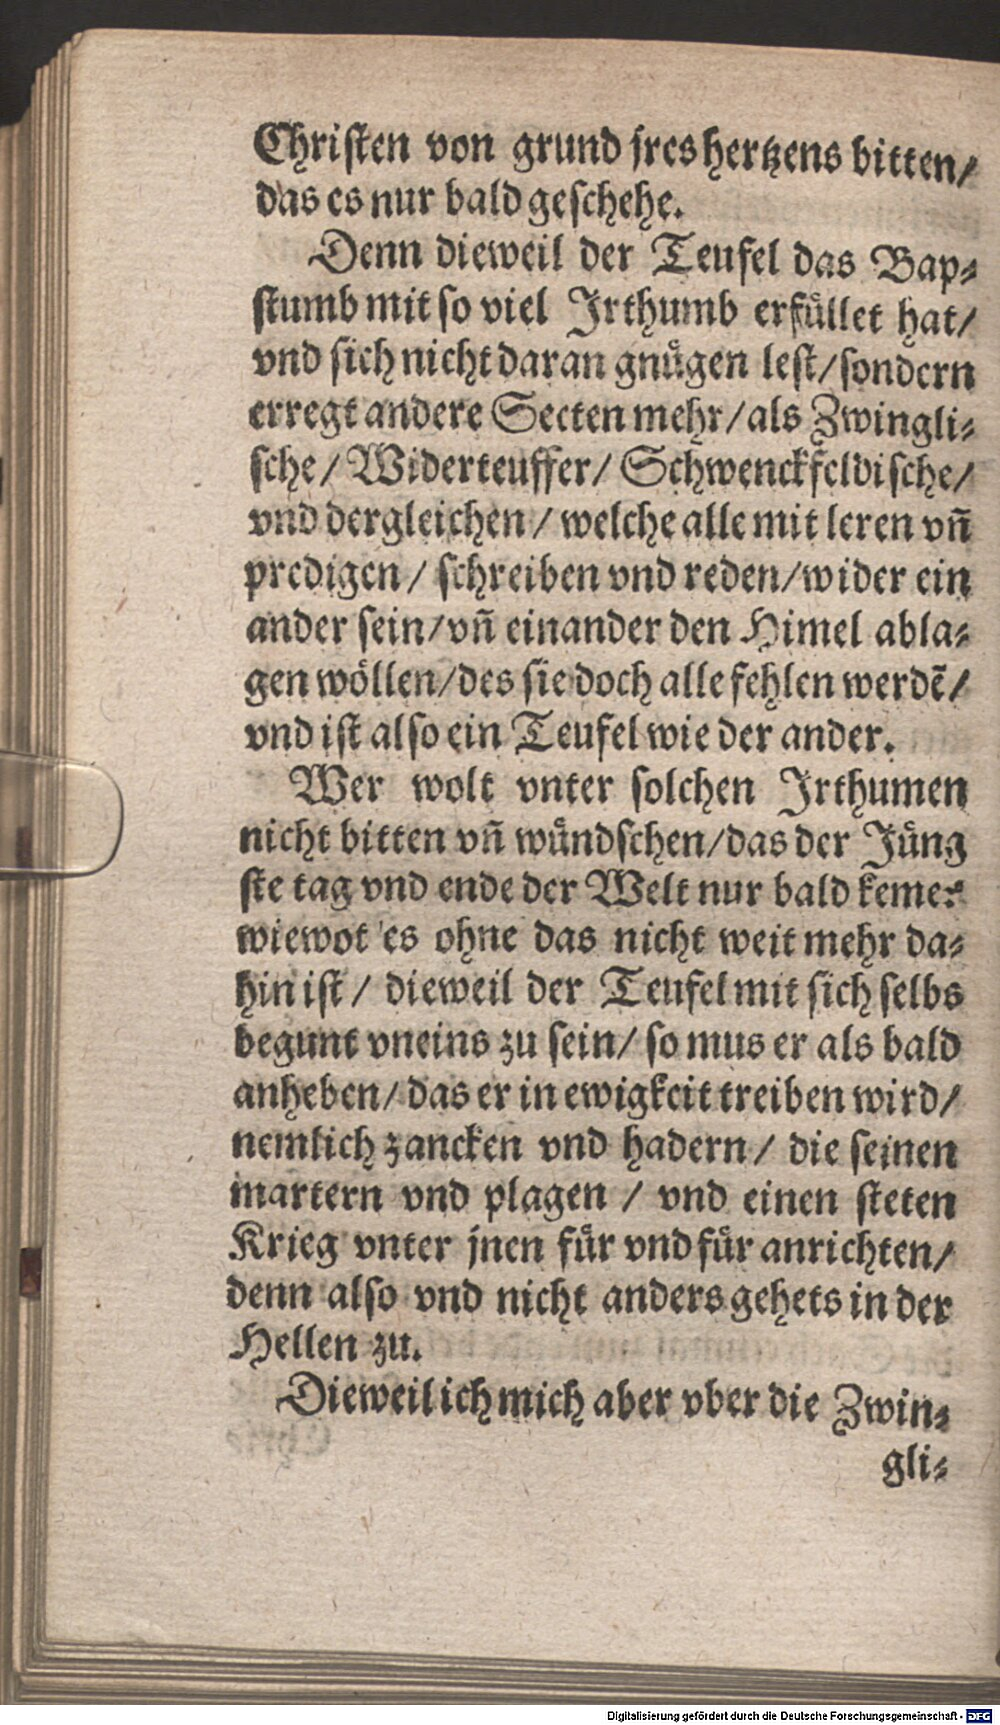 Christen von grund jres hertzens bitten/
das es nur bald geschehe.
Denn dieweil der Teufel das Bap⸗
stumb mit so viel Jrthumb erfüllet hat/
vnd sich nicht daran gnügen lest/sondern
erregt andere Secten mehr/als Zwingli⸗
sche/ Widerteuffer/ Schwenckfeldische/
vnd dergleichen/ welche alle mit leren vñ
predigen/ schreiben vnd reden/wider ein
ander sein/vñ einander den Himel abla⸗
gen wöllen/des sie doch alle fehlen werdẽ/
vnd ist also ein Teufel wie der ander.
Wer wolt vnter solchen Jrthumen
nicht bitten vñ wündschen/das der Jüng
ste tag vnd ende der Welt nur bald keme:
wiewot es ohne das nicht weit mehr da⸗
hin ist/ dieweil der Teufel mit sich selbs
begunt vneins zu sein/ so mus er als bald
anheben/das er in ewigkeit treiben wird/
nemlich zancken vnd hadern/ die seinen
martern vnd plagen/ vnd einen steten
Krieg vnter jnen für vnd für anrichten/
denn also vnd nicht anders gehets in der
Hellen zu.
Dieweil ich mich aber vber die Zwin⸗
gli⸗
Digitalisierung gefördert durch die Deutsche Forschungsgemeinschaft - DFG